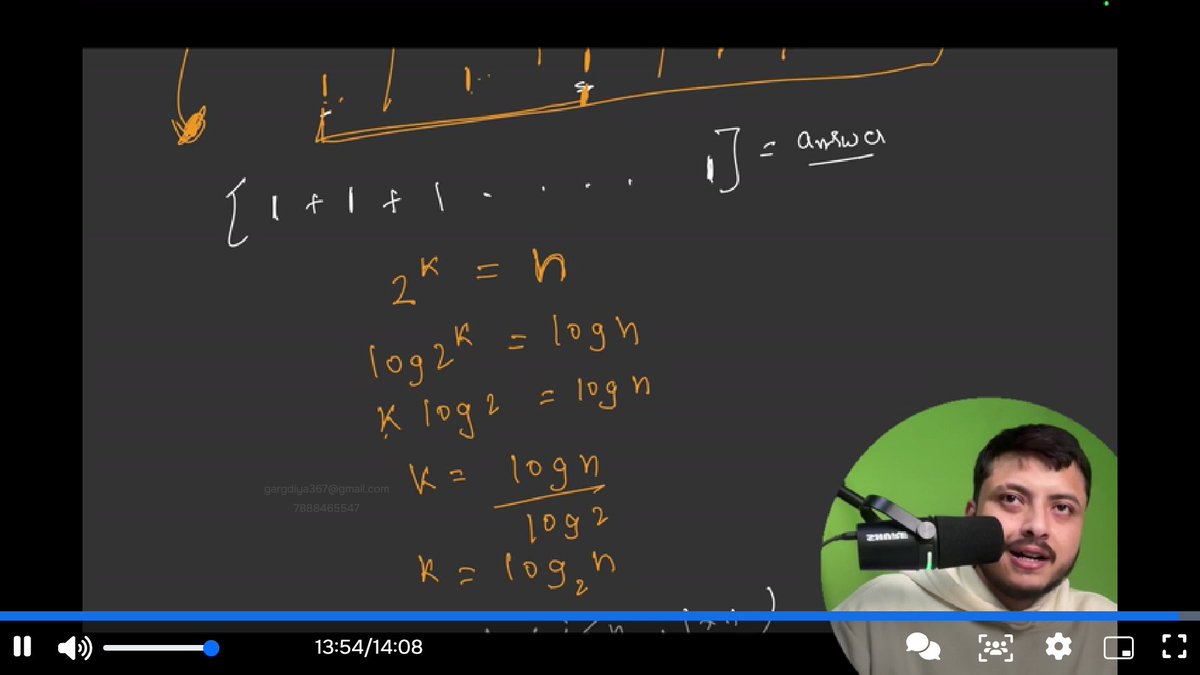 [ 1 + 1 + 1 - . . . . 1 ] = answer
2^k = n
log 2^k = log n
k log 2 = log n
k = log n / log 2
gargdiya367@gmail.com
7888465547
k = log₂ n
13:54/14:08